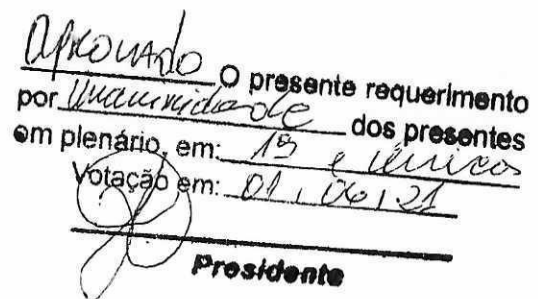 aprovado O presente requerimento
por unanimidade dos presentes
em plenário, em: 1ª e única
Votação em: 01 / 06 / 21
Presidente